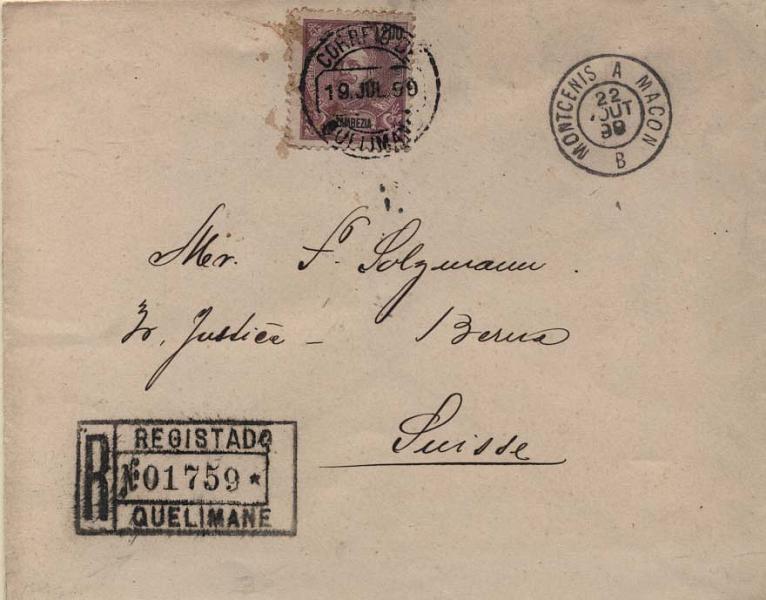 200
CORREIO DE
19. JUL. 99
ZAMBEZIA
QUELIMANE
MONTCENIS A MACON
22
AOUT
99
B
Mr. F. Salzmann.
Justice - Berne
Suisse
REGISTADO
R Nº 01759 *
QUELIMANE